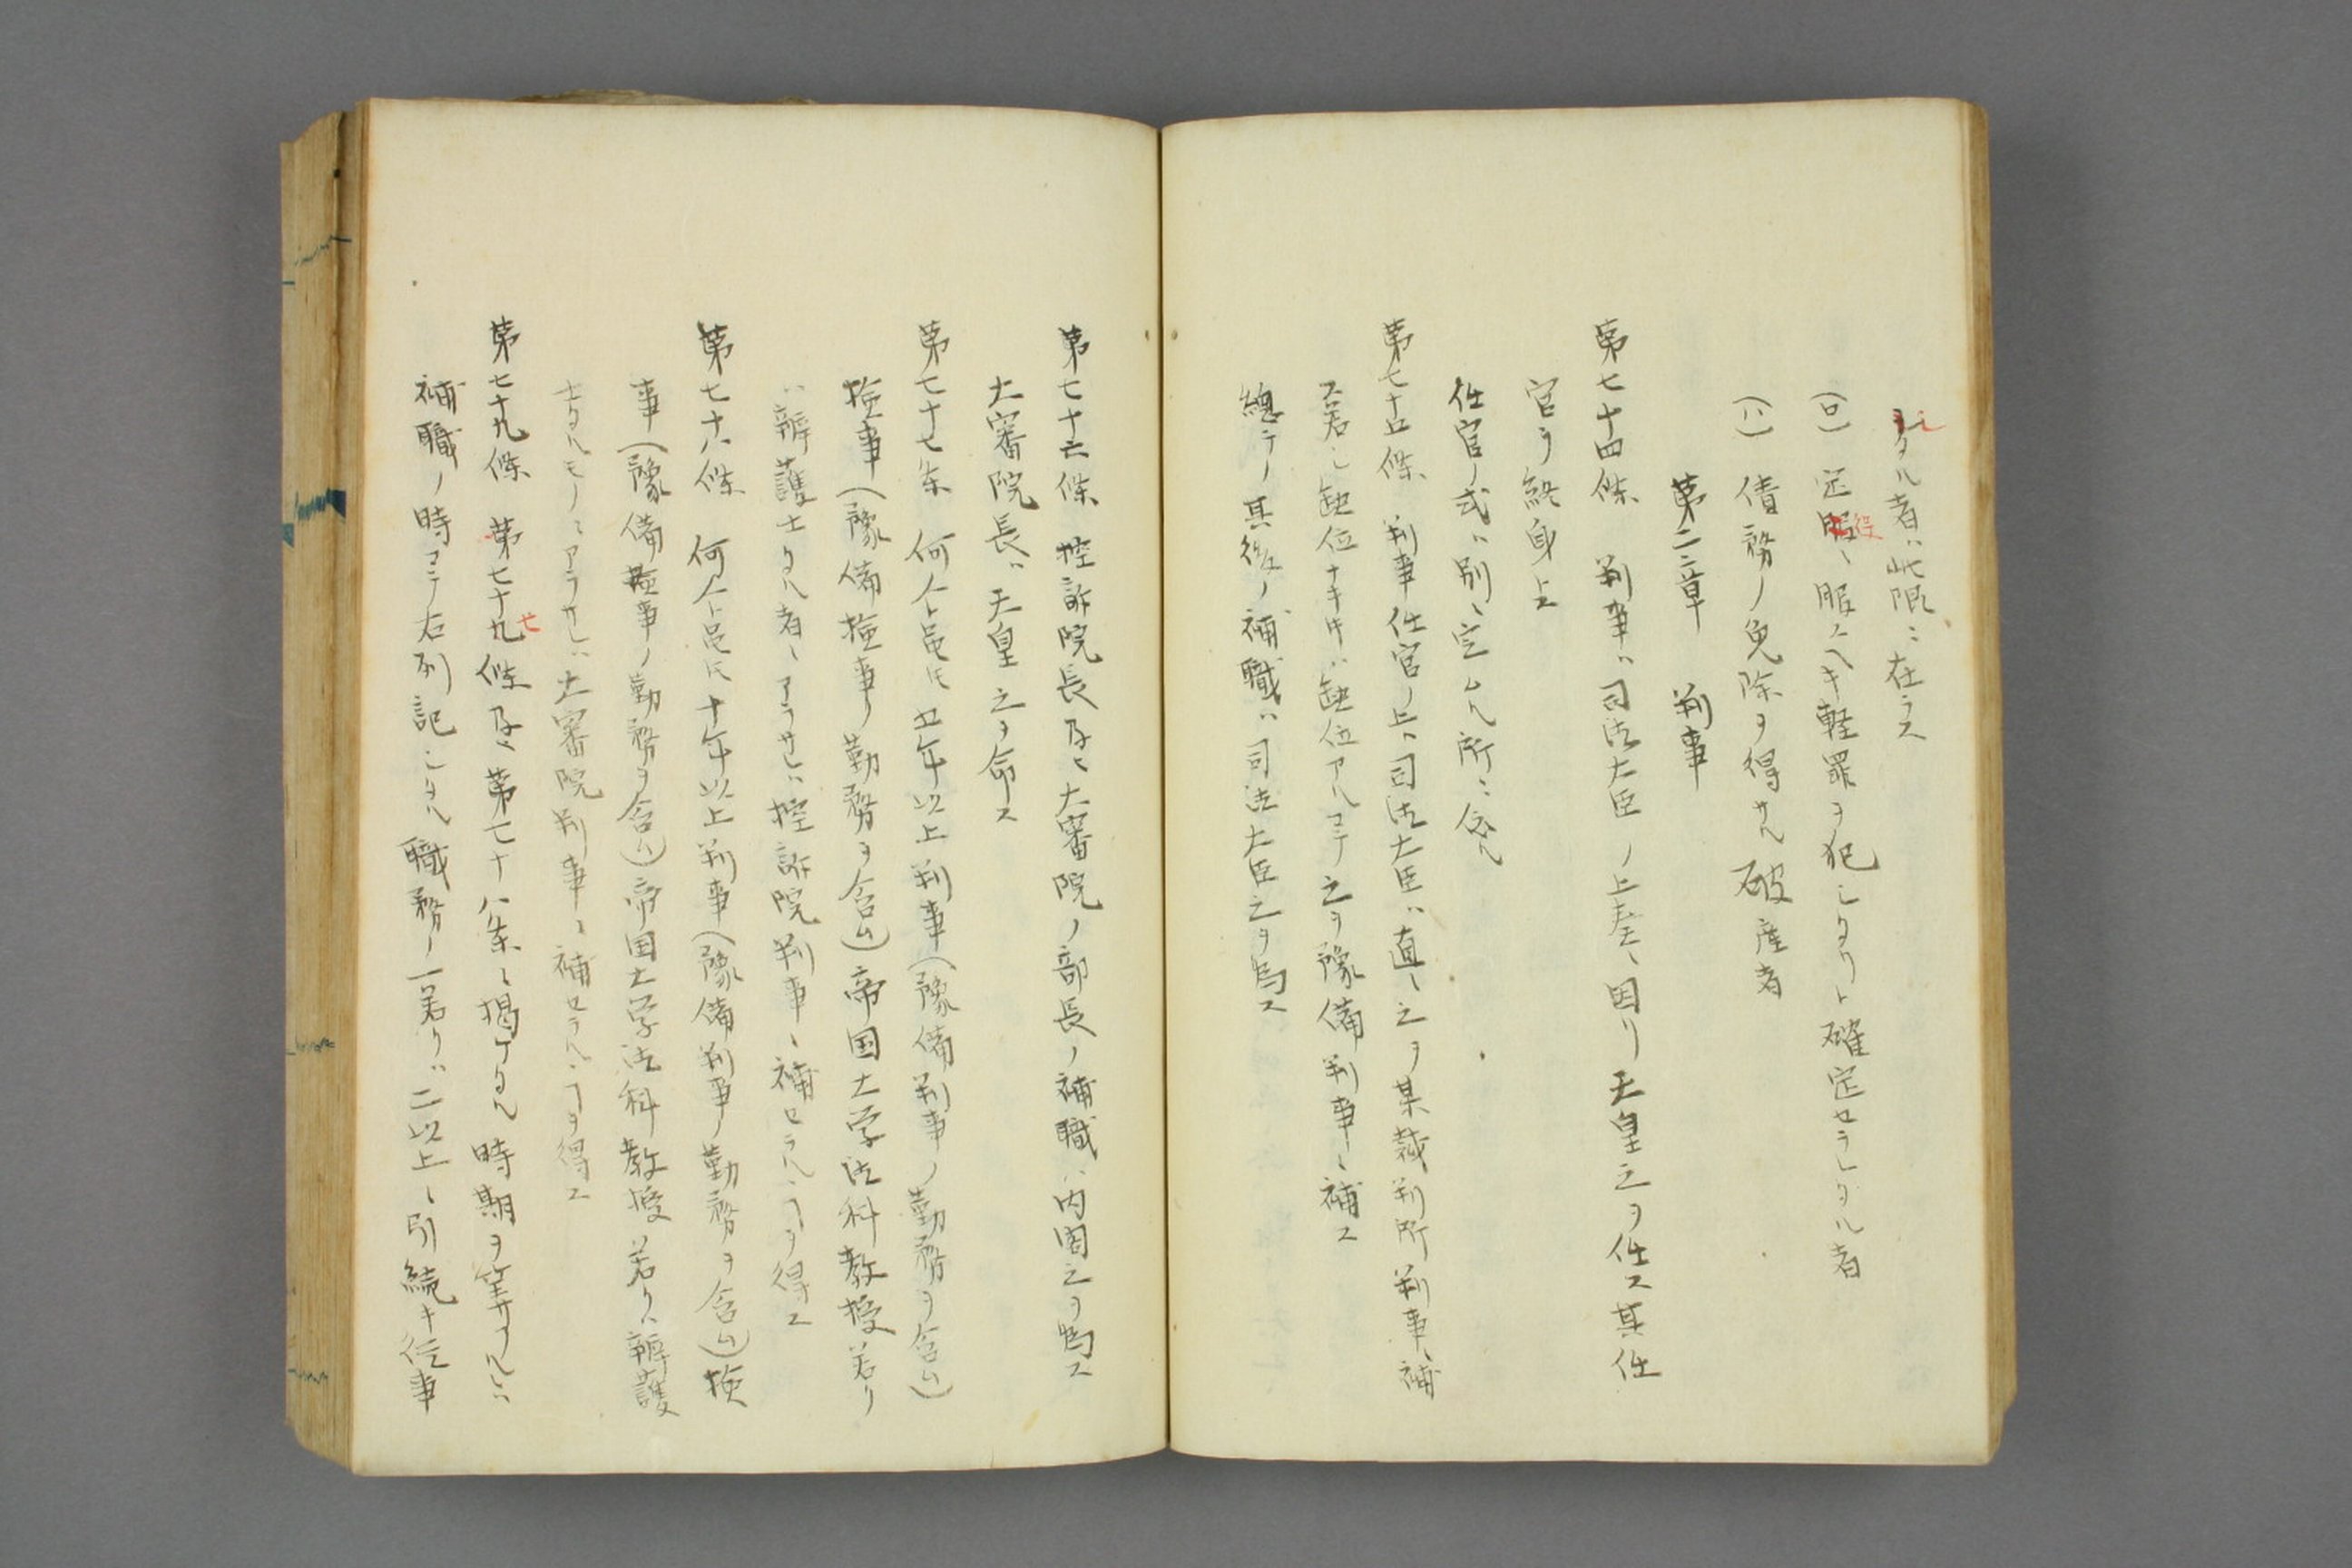 シタル者ハ此限ニ在ラス
(ロ) 定役ニ服スヘキ軽罪ヲ犯シタリト確定セラレタル者
(ハ) 債務ノ免除ヲ得サル破産者
第二章 判事
第七十四條 判事ハ司法大臣ノ上奏ニ因リ天皇之ヲ任ス其任
官ヲ終身トス
任官ノ式ハ別ニ定ムル所ニ依ル
第七十五條 判事任官ノ上ハ司法大臣ハ直ニ之ヲ某裁判所判事ニ補
ス若シ缺位ナキ時ハ缺位アルマテ之ヲ豫備判事ニ補ス
總テノ其後ノ補職ハ司法大臣之ヲ為ス
第七十六條 控訴院長及ヒ大審院ノ部長ノ補職ハ内閣之ヲ為ス
大審院長ハ天皇之ヲ命ス
第七十七条 何人ト雖モ五年以上判事(豫備判事ノ勤務ヲ含ム)
検事(豫備検事ノ勤務ヲ含ム)帝国大学法科教授若ク
ハ辨護士タル者ニアラサレハ控訴院判事ニ補セラルヿヲ得ス
第七十八條 何人ト雖モ十年以上判事(豫備判事ノ勤務ヲ含ム)検
事(豫備検事ノ勤務ヲ含ム)帝国大学法科教授若クハ辨護
士タルモノニアラサレハ大審院判事ニ補セラルヿヲ得ス
第七十九條 第七十七條及ヒ第七十八条ニ掲ケタル時期ヲ算スルハ
補職ノ時マテ右列記シタル職務ノ一若クハ二以上ニ引続キ従事